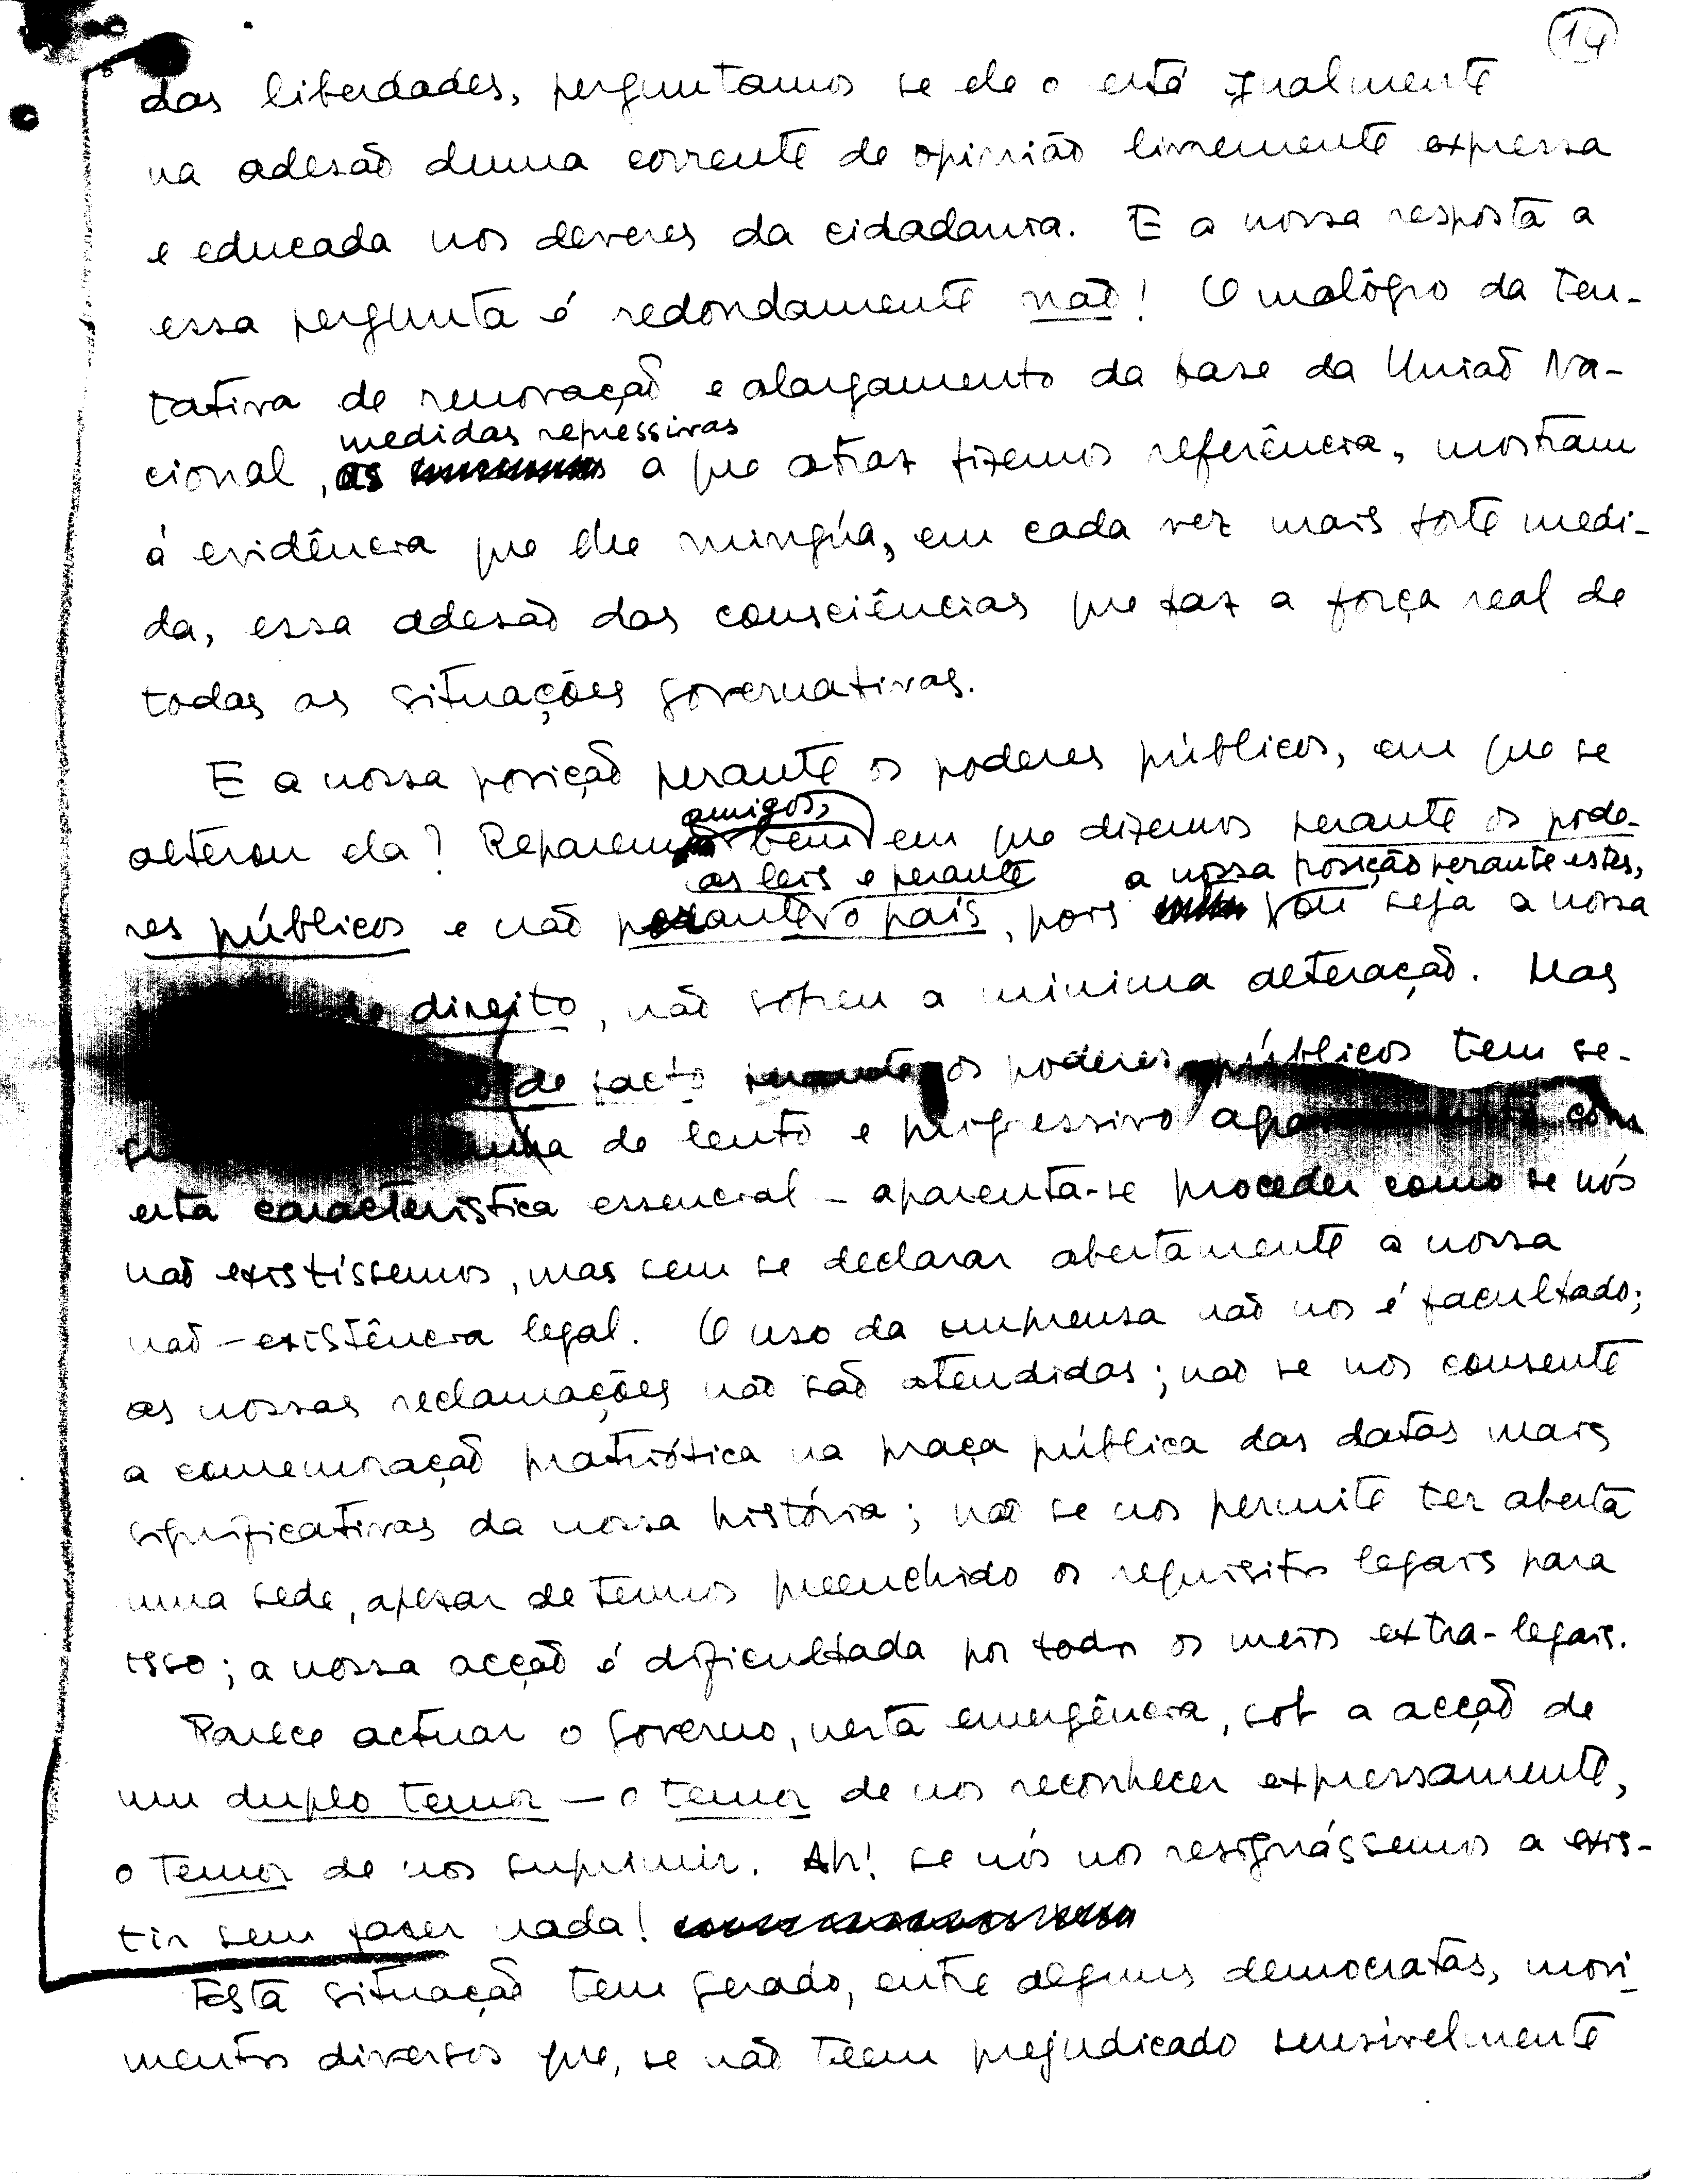 14
das liberdades, perguntamos se ele o está igualmente
na adesão duma corrente de opinião livremente expressa
e educada nos deveres da cidadania. E a nossa resposta a
essa pergunta é redondamente não! O malôgro da ten-
tativa de renovação e alargamento da base da União Na-
medidas repressivas
cional, as a que atraz fizemos referência, mostram
à evidência que lhe mingúa, em cada vez mais forte medi-
da, essa adesão das consciências que faz a força real de
todas as situações governativas.
E a nossa posição perante os poderes públicos, em que se
amigos,
alterou ela? Reparem bem em que dizemos perante os pode-
as leis e perante a nossa posição perante estes,
res públicos e não perante o país, pois ou seja a nossa
de direito, não sofreu a mínima alteração. Mas
de facto os poderes públicos tem se-
de lento e progressivo com
esta característica essencial - aparenta-se proceder como se nós
não existíssemos, mas sem se declarar abertamente a nossa
não-existência legal. O uso da imprensa não nos é facultado;
as nossas reclamações não são atendidas; não se nos consente
a comemoração patriótica na praça pública das datas mais
significativas da nossa história; não se nos permite ter aberta
uma sede, apesar de termos preenchido os requisitos legais para
isso; a nossa acção é dificultada por todos os meios extra-legais.
Parece actuar o Governo, nesta emergência, sob a acção de
um duplo temor - o temor de nos reconhecer expressamente,
o temor de nos suprimir. Ah! se nós nos resignássemos a exis-
tir sem fazer nada!
Esta situação tem gerado, entre alguns democratas, movi-
mentos diversos que, se não teem prejudicado sensivelmente